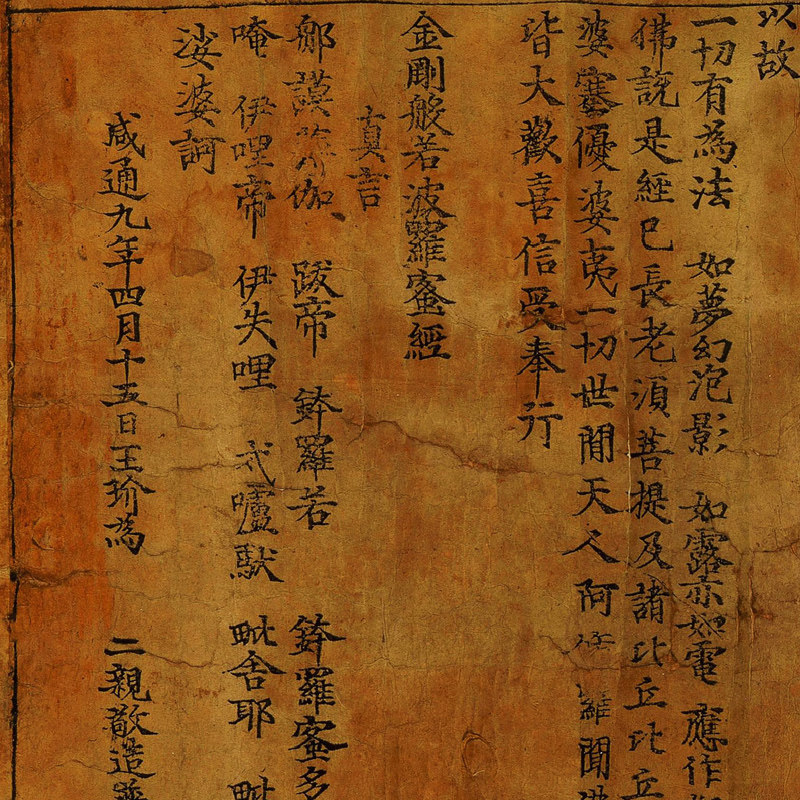 以故
一切有為法 如夢幻泡影 如露亦如電 應作
佛説是經已長老湏菩提及諸比丘比丘
婆塞優婆夷一切世閒天人阿脩羅聞佛
皆大歡喜信受奉行
金剛般若波羅蜜經
真言
那謨 伽 跋帝 鉢羅若 鉢羅蜜多
唵 伊哩帝 伊失哩 戒嚧馱 毗舍耶 毗
娑婆訶
咸通九年四月十五日王玠為 二親敬造普